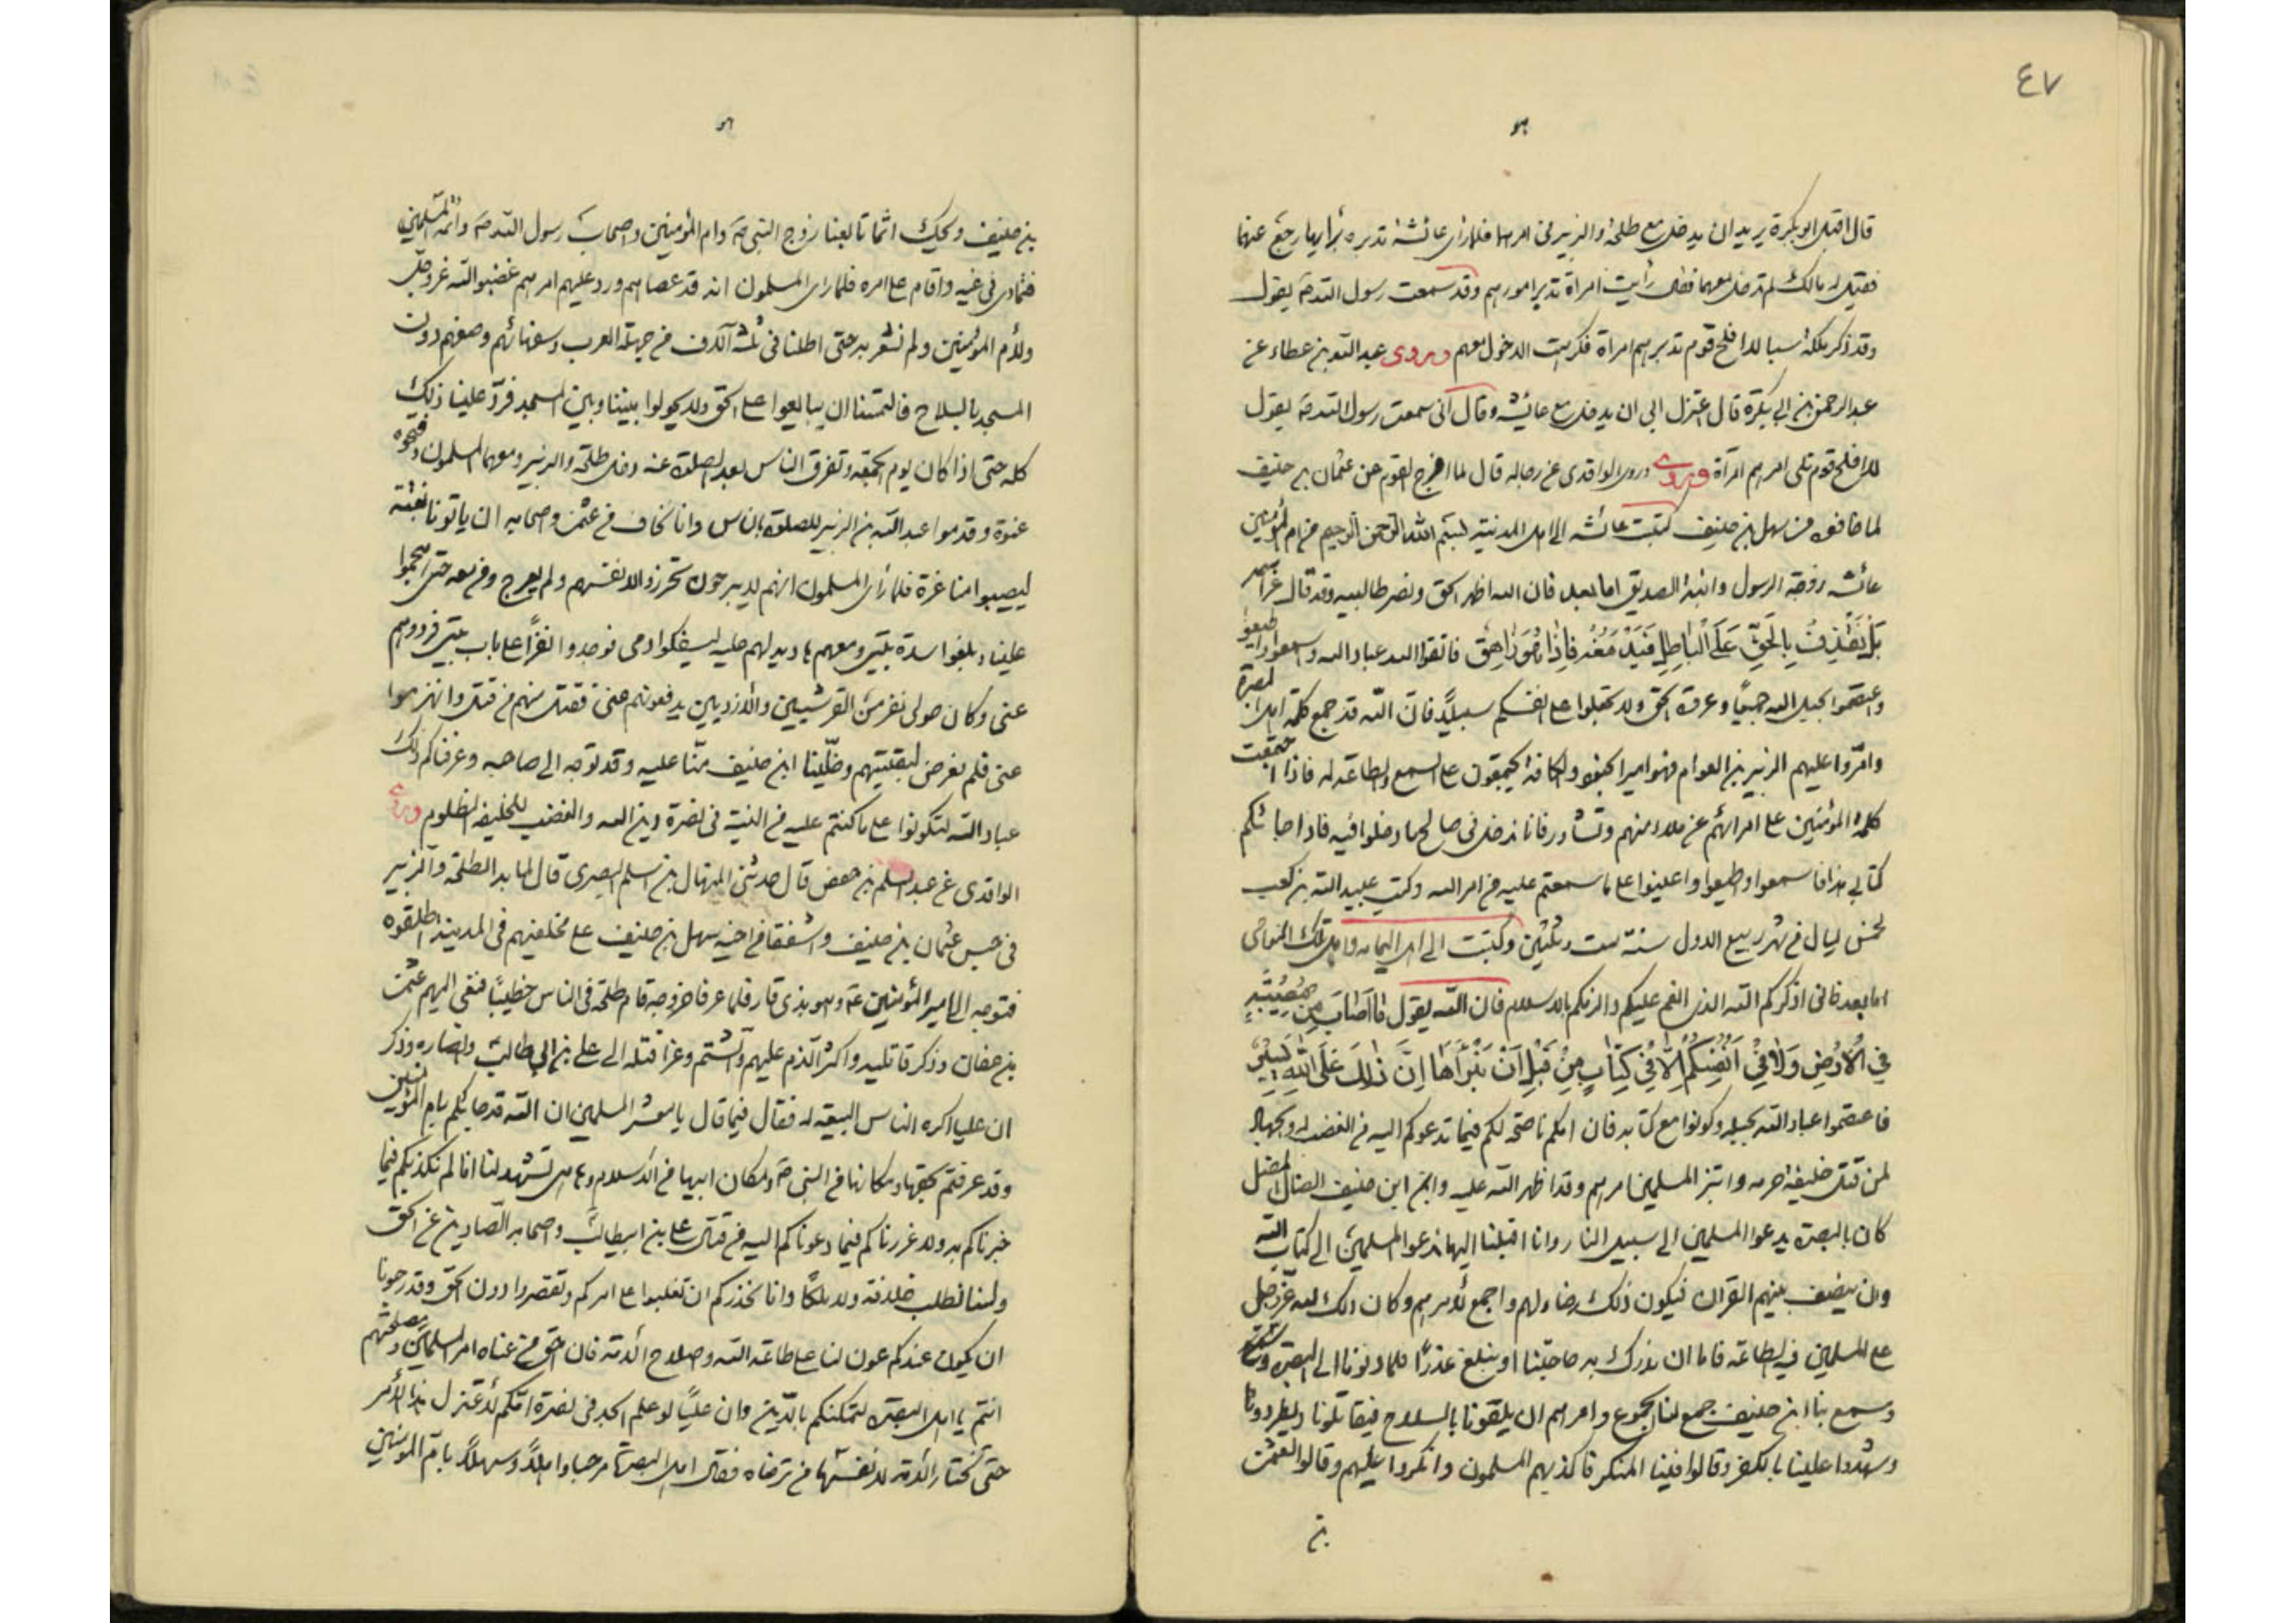 ٤٧
هو
قال اقبل ابو بكرة يريد ان يدخل مع طلحة والزبير في امرهما فلما راى عائشة تدبره برأيها رجع عنهما
فقيل له مالك لم تدخل معهما فقال رأيت امراة تدبر امورهم وقد سمعت رسول الله ص يقول
وقد ذكر ملكة سبا لا افلح قوم تدبرهم امراة فكرهت الدخول معهم وروى عبد الله بن عطاء عن
عبد الرحمن بن ابي بكرة قال اعتزل ابي ان يدخل مع عائشة وقال انى سمعت رسول الله ص يقول
لا افلح قوم تلى امرهم امرأة وروى وروى الواقدى عن رجاله قال لما اخرج القوم عثمان بن حنيف
لما خافوه من سهل بن حنيف كتبت عائشه الى اهل المدينة بسم الله الرحمن الرحيم من ام المؤمنين
عائشه زوجة الرسول وابنة الصديق اما بعد فان الله اظهر الحق ونصر طالبيه وقد قال عز اسمه
بَلْ نَقْذِفُ بِالْحَقِّ عَلَى الْبَاطِلِ فَيَدْمَغُهُ فَاِذَا هُوَ زَاهِقٌ فاتقوا الله عباد الله واسمعوا واطيعوا
واعتصموا بحبل الله جميعًا وعروة الحق ولا تجعلوا على انفسكم سبيلًا فان الله قد جمع كلمة اهل البصرة
وامّروا عليهم الزبير بن العوام فهو امير الجنود والكافة يجتمعون على السمع والطاعة له فاذا اجتمعت
كلمة المؤمنين على امرائهم عن ملاء منهم وتشاور فانا ندخل في صالح ما دخلوا فيه فاذا جائكم
كتابي هذا فاسمعوا واطيعوا واعينوا على ما سمعتم عليه من امر الله وكتب عبيد الله بن كعب
لخمس ليال من شهر ربيع الاول سنة ست وثلثين وكتبت الى اهل اليمامه واهل تلك النواحى
اما بعد فانى اذكركم الله الذى انعم عليكم والزمكم بالاسلام فان الله يقول مَا اَصَابَ مِنْ مُصِيْبَةٍ
فِي الْاَرْضِ وَلَا فِيْ اَنْفُسِكُمْ اِلَّا فِيْ كِتَابٍ مِنْ قَبْلِ اَنْ نَبْرَاَهَا اِنَّ ذٰلِكَ عَلَى اللّٰهِ يَسِيْرٌ
فاعتصموا عباد الله بحبله وكونوا مع كتابه فان امكم ناصحة لكم فيما تدعوكم اليه من الغضب له والجهاد
لمن قتل خليفة حرمه وابتز المسلمين امرهم وقد اظهر الله عليه وان ابن حنيف الضال المضل
كان بالبصرة يدعو المسلمين الى سبيل النار وانا اقبلنا اليها ندعو المسلمين الى كتاب الله
وان يضعف بينهم القران فيكون ذلك رضاء لهم واجمع لامرهم وكان ذلك لله عز وجل
على المسلمين فيه الطاعة فاما ان ندرك به حاجتنا او نبلغ عذرًا فلما دنونا الى البصرة
وسمع بنا ابن حنيف جمع لنا الجموع وامرهم ان يلقونا بالسلاح فيقاتلونا ويطردونا
وشهدوا علينا بالكفر وقالوا فينا المنكر فاكذبهم المسلمون وانكروا عليهم وقالوا لعثمن
بن
هو
بن حنيف ويحك انما تابعنا زوج النبى ص وام المؤمنين واصحاب رسول الله ص وائمة المسلمين
فتمادى فى غيه واقام على امره فلما راى المسلمون انه قد عصاهم ورد عليهم امرهم غضبوا لله عز وجل
ولأم المؤمنين ولم نشعر به حتى اظلنا فى ثلثة آلاف من جهلة العرب وسفهائهم وصفهم دون
المسجد بالسلاح فالتمسنا ان يبايعوا على الحق ولا يحولوا بيننا وبين المسجد فردّ علينا ذلك
كله حتى اذا كان يوم الجمعة وتفرق الناس بعد الصلوة عنه دخل طلحة والزبير ومعهما المسلمون وفتحوه
عنوة وقدموا عبد الله بن الزبير للصلوة بالناس وانا نخاف من عثمن واصحابه ان ياتونا بغتة
ليصيبوا منا غرة فلما رأى المسلمون انهم لا يبرحون تحرزوا لانفسهم ولم يعرج ومن معه حتى هجموا
علينا وبلغوا سدة بيتى ومعهم هاد يدلهم عليه ليسفكوا دمى فوجدوا نفرًا على باب بيتى فردوهم
عنى وكان حولى نفر من القرشيين والازديين يدفعونهم عنى فقتل منهم من قتل وانهزموا
عنى فلم نعرض لبقيتهم وخلّينا ابن حنيف منّا عليه وقد توجه الى صاحبه وعرفناكم ذلك
عباد الله لتكونوا على ما كنتم عليه من النية فى نصرة دين الله والغضب للخليفة المظلوم وروى
الواقدى عن عبد السلم بن حفص قال حدثنى المنهال بن سلم البصرى قال لما بدا لطلحة والزبير
فى حبس عثمان بن حنيف واشفقا من اخيه سهل بن حنيف على مخلفيهم فى المدينة اطلقوه
فتوجه الى امير المؤمنين ع وهو بذى قار فلما عرفا خروجه قام طلحة فى الناس خطيبًا فنعى اليهم عثمن
بن عفان وذكر قاتليه واكثر الذم عليهم والشتم وعزا قتله الى على بن ابي طالب وانصاره وذكر
ان عليا اكره الناس البيعة له فقال فيما قال يا معشر المسلمين ان الله قد جائكم بام المؤمنين
وقد عرفتم حقها ومكانها من النبى ص ومكان ابيها من الاسلام وها هى تشهد لنا انا لم نكذبكم فيما
خبرناكم به ولا غررناكم فيما دعوناكم اليه من قتال على بن ابيطالب واصحابه الصادين عن الحق
ولسنا نطلب خلافة ولا ملكًا وانا نحذركم ان تغلبوا على امركم وتقصروا دون الحق وقد رجونا
ان يكون عندكم عون لنا على طاعة الله وصلاح الامة فان احق من عناه امر المسلمين ومصلحتهم
انتم يا اهل البصرة لتمكنكم بالدّين وان عليًا لو علم الجد فى نصرة امكم لاعتزل هذا الأمر
حتى تختار الامة لانفسها من ترضاه فقال اهل البصرة مرحبا واهلًا وسهلًا بام المؤمنين